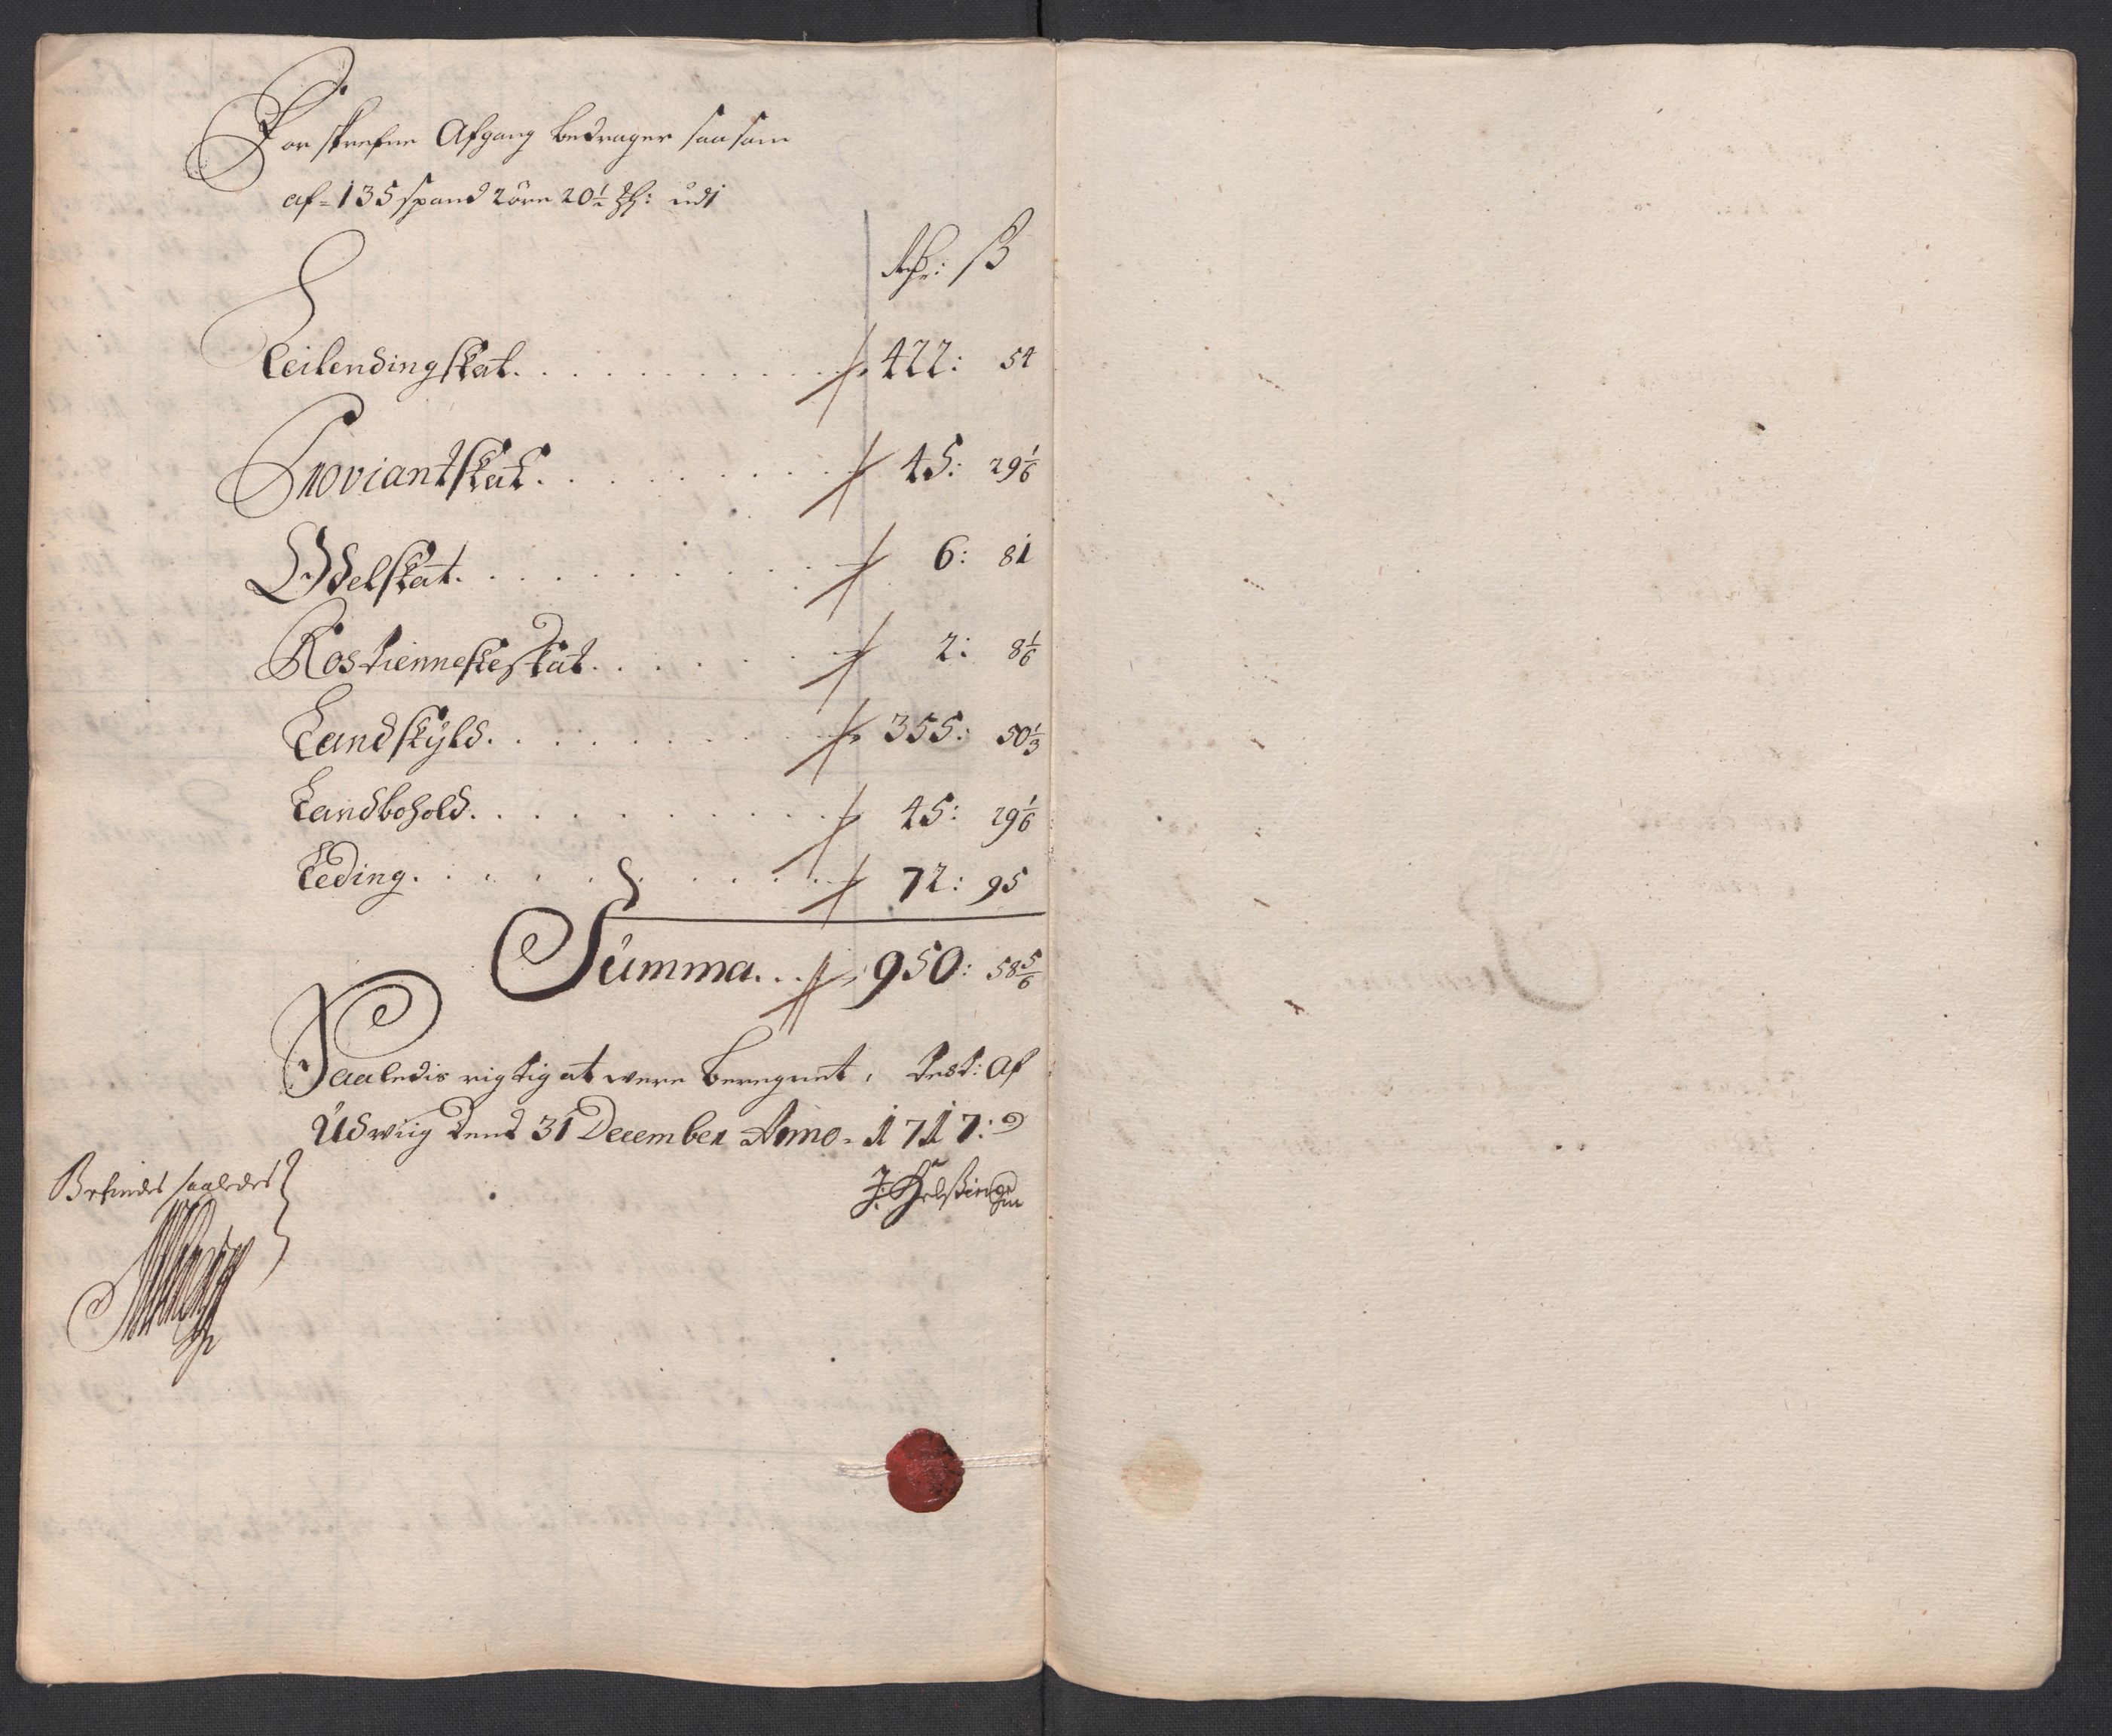 Forskrefne Afgang bedrager saasom
af 135 spand 2 øre 20½ udi
Rdr: ß
Leilendingskat. . . . . . . . . . 422: 54
Proviantskat. . . . . . . . 45: 29 1/6
Odelskat. . . . . . . . . . 6: 81
Rostienneskeskat. . . . . . . 2: 8 1/6
Landskÿld. . . . . . . . . 355: 50 1/3
Landbohold. . . . . . . . . 45: 29 1/6
Leding. . . . . . . . . . 72: 95
Summa. . . 950: 58 5/6
Saaledis rigtig at were beregnet, test: Af
Udwiig dend 31 December Anno 1717:
Befindes saaledes
J: Helssing